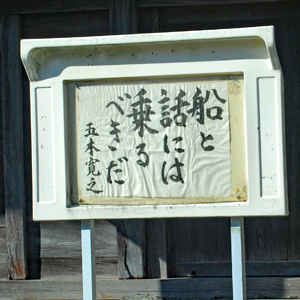 船と
話には
乗る
べきだ
五木寛之